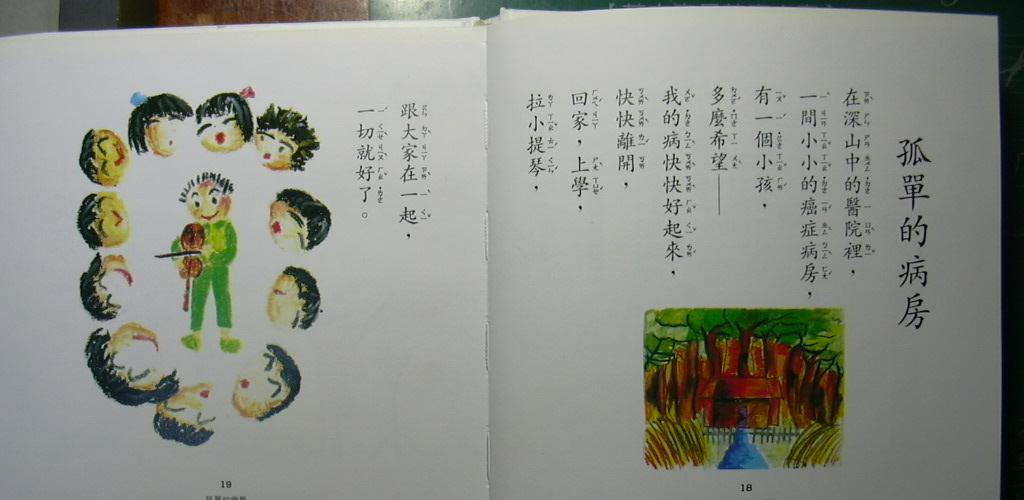 孤單的病房
在深山中的醫院裡，
一間小小的癌症病房，
有一個小孩，
多麼希望——
我的病快快好起來，
快快離開，
回家，上學，
拉小提琴，
18
跟大家在一起，
一切就好了。
19